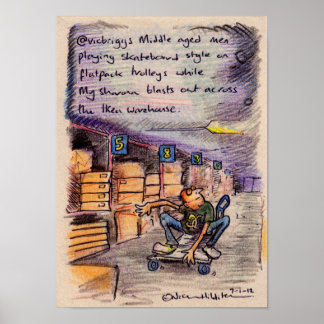 @vicbriggs Middle aged men
playing skateboard style on
flatpack trolleys while
My Sharona blasts out across
the Ikea warehouse.
5
8
9-1-12